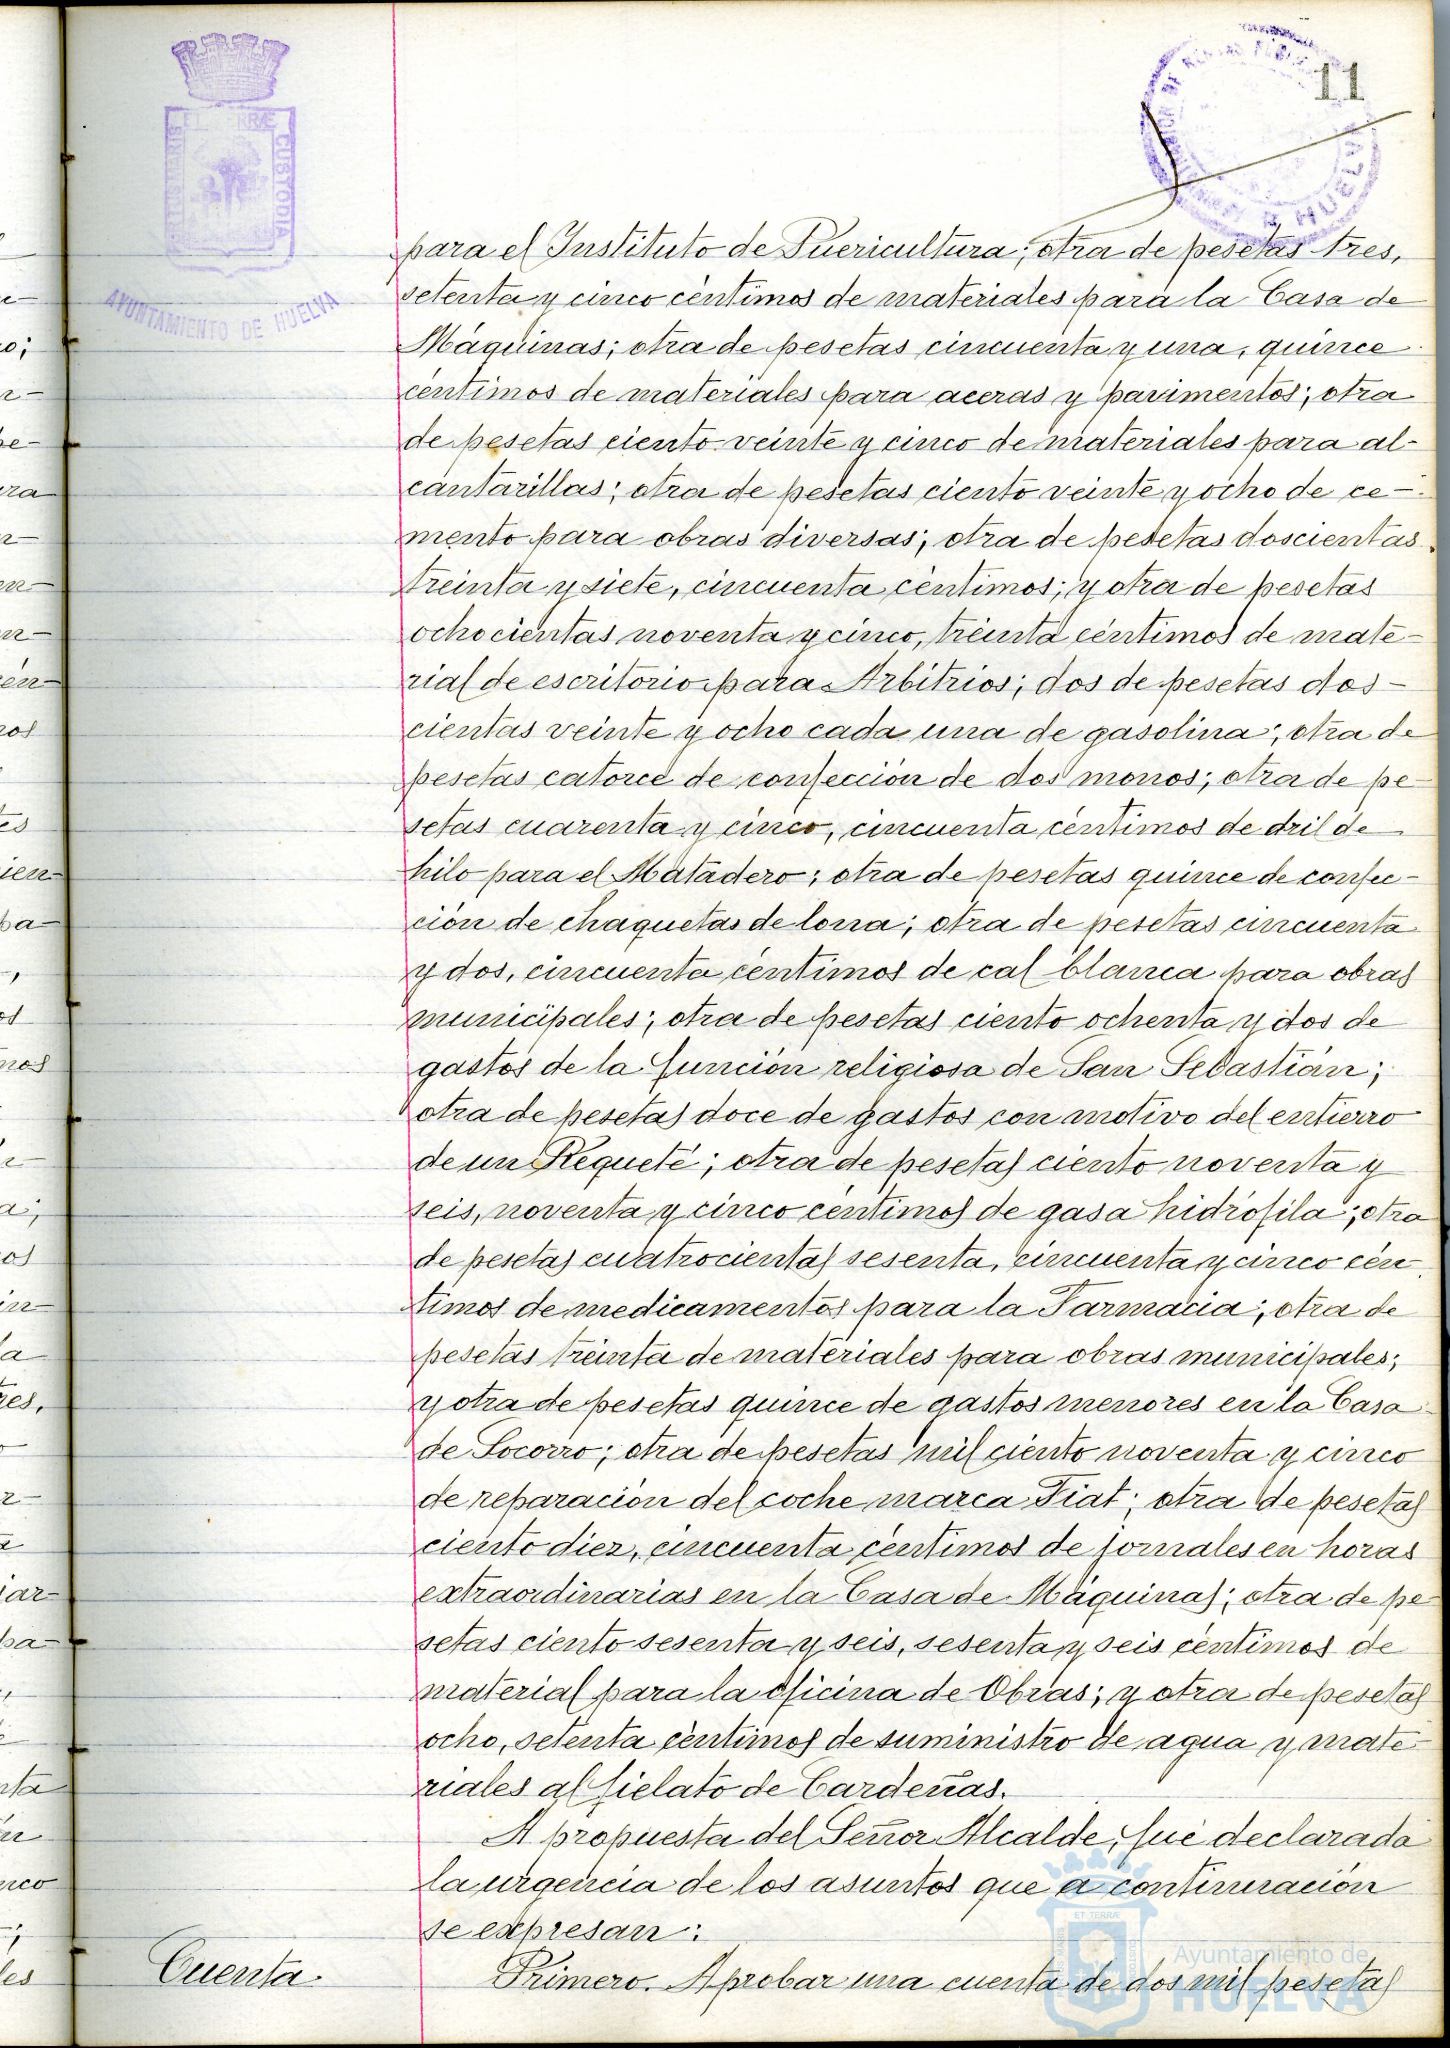 11
ET TERRÆ
CUSTODIA
AYUNTAMIENTO DE HUELVA
HUELVA
para el Instituto de Puericultura; otra de pesetas tres,
setenta y cinco céntimos de materiales para la Casa de
Máquinas; otra de pesetas cincuenta y una, quince
céntimos de materiales para aceras y pavimentos; otra
de pesetas ciento veinte y cinco de materiales para al-
cantarillas; otra de pesetas ciento veinte y ocho de ce-
mento para obras diversas; otra de pesetas doscientas
treinta y siete, cincuenta céntimos; y otra de pesetas
ochocientas noventa y cinco, treinta céntimos de mate-
rial de escritorio para Arbitrios; dos de pesetas dos-
cientas veinte y ocho cada una de gasolina; otra de
pesetas catorce de confección de dos monos; otra de pe-
setas cuarenta y cinco, cincuenta céntimos de dril de
hilo para el Matadero; otra de pesetas quince de confec-
ción de chaquetas de lona; otra de pesetas cincuenta
y dos, cincuenta céntimos de cal blanca para obras
municipales; otra de pesetas ciento ochenta y dos de
gastos de la función religiosa de San Sebastián;
otra de pesetas doce de gastos con motivo del entierro
de un Requeté; otra de pesetas ciento noventa y
seis, noventa y cinco céntimos de gasa hidrófila; otra
de pesetas cuatrocientas sesenta, cincuenta y cinco cén-
timos de medicamentos para la Farmacia; otra de
pesetas treinta de materiales para obras municipales;
y otra de pesetas quince de gastos menores en la Casa
de Socorro; otra de pesetas mil ciento noventa y cinco
de reparación del coche marca Fiat; otra de pesetas
ciento diez, cincuenta céntimos de jornales en horas
extraordinarias en la Casa de Máquinas; otra de pe-
setas ciento sesenta y seis, sesenta y seis céntimos de
material para la oficina de Obras; y otra de pesetas
ocho, setenta céntimos de suministro de agua y mate-
riales al fielato de Cardeñas.
A propuesta del Señor Alcalde, fué declarada
la urgencia de los asuntos que a continuación
se expresan:
Cuenta
Primero. Aprobar una cuenta de dos mil pesetas
Ayuntamiento de
HUELVA